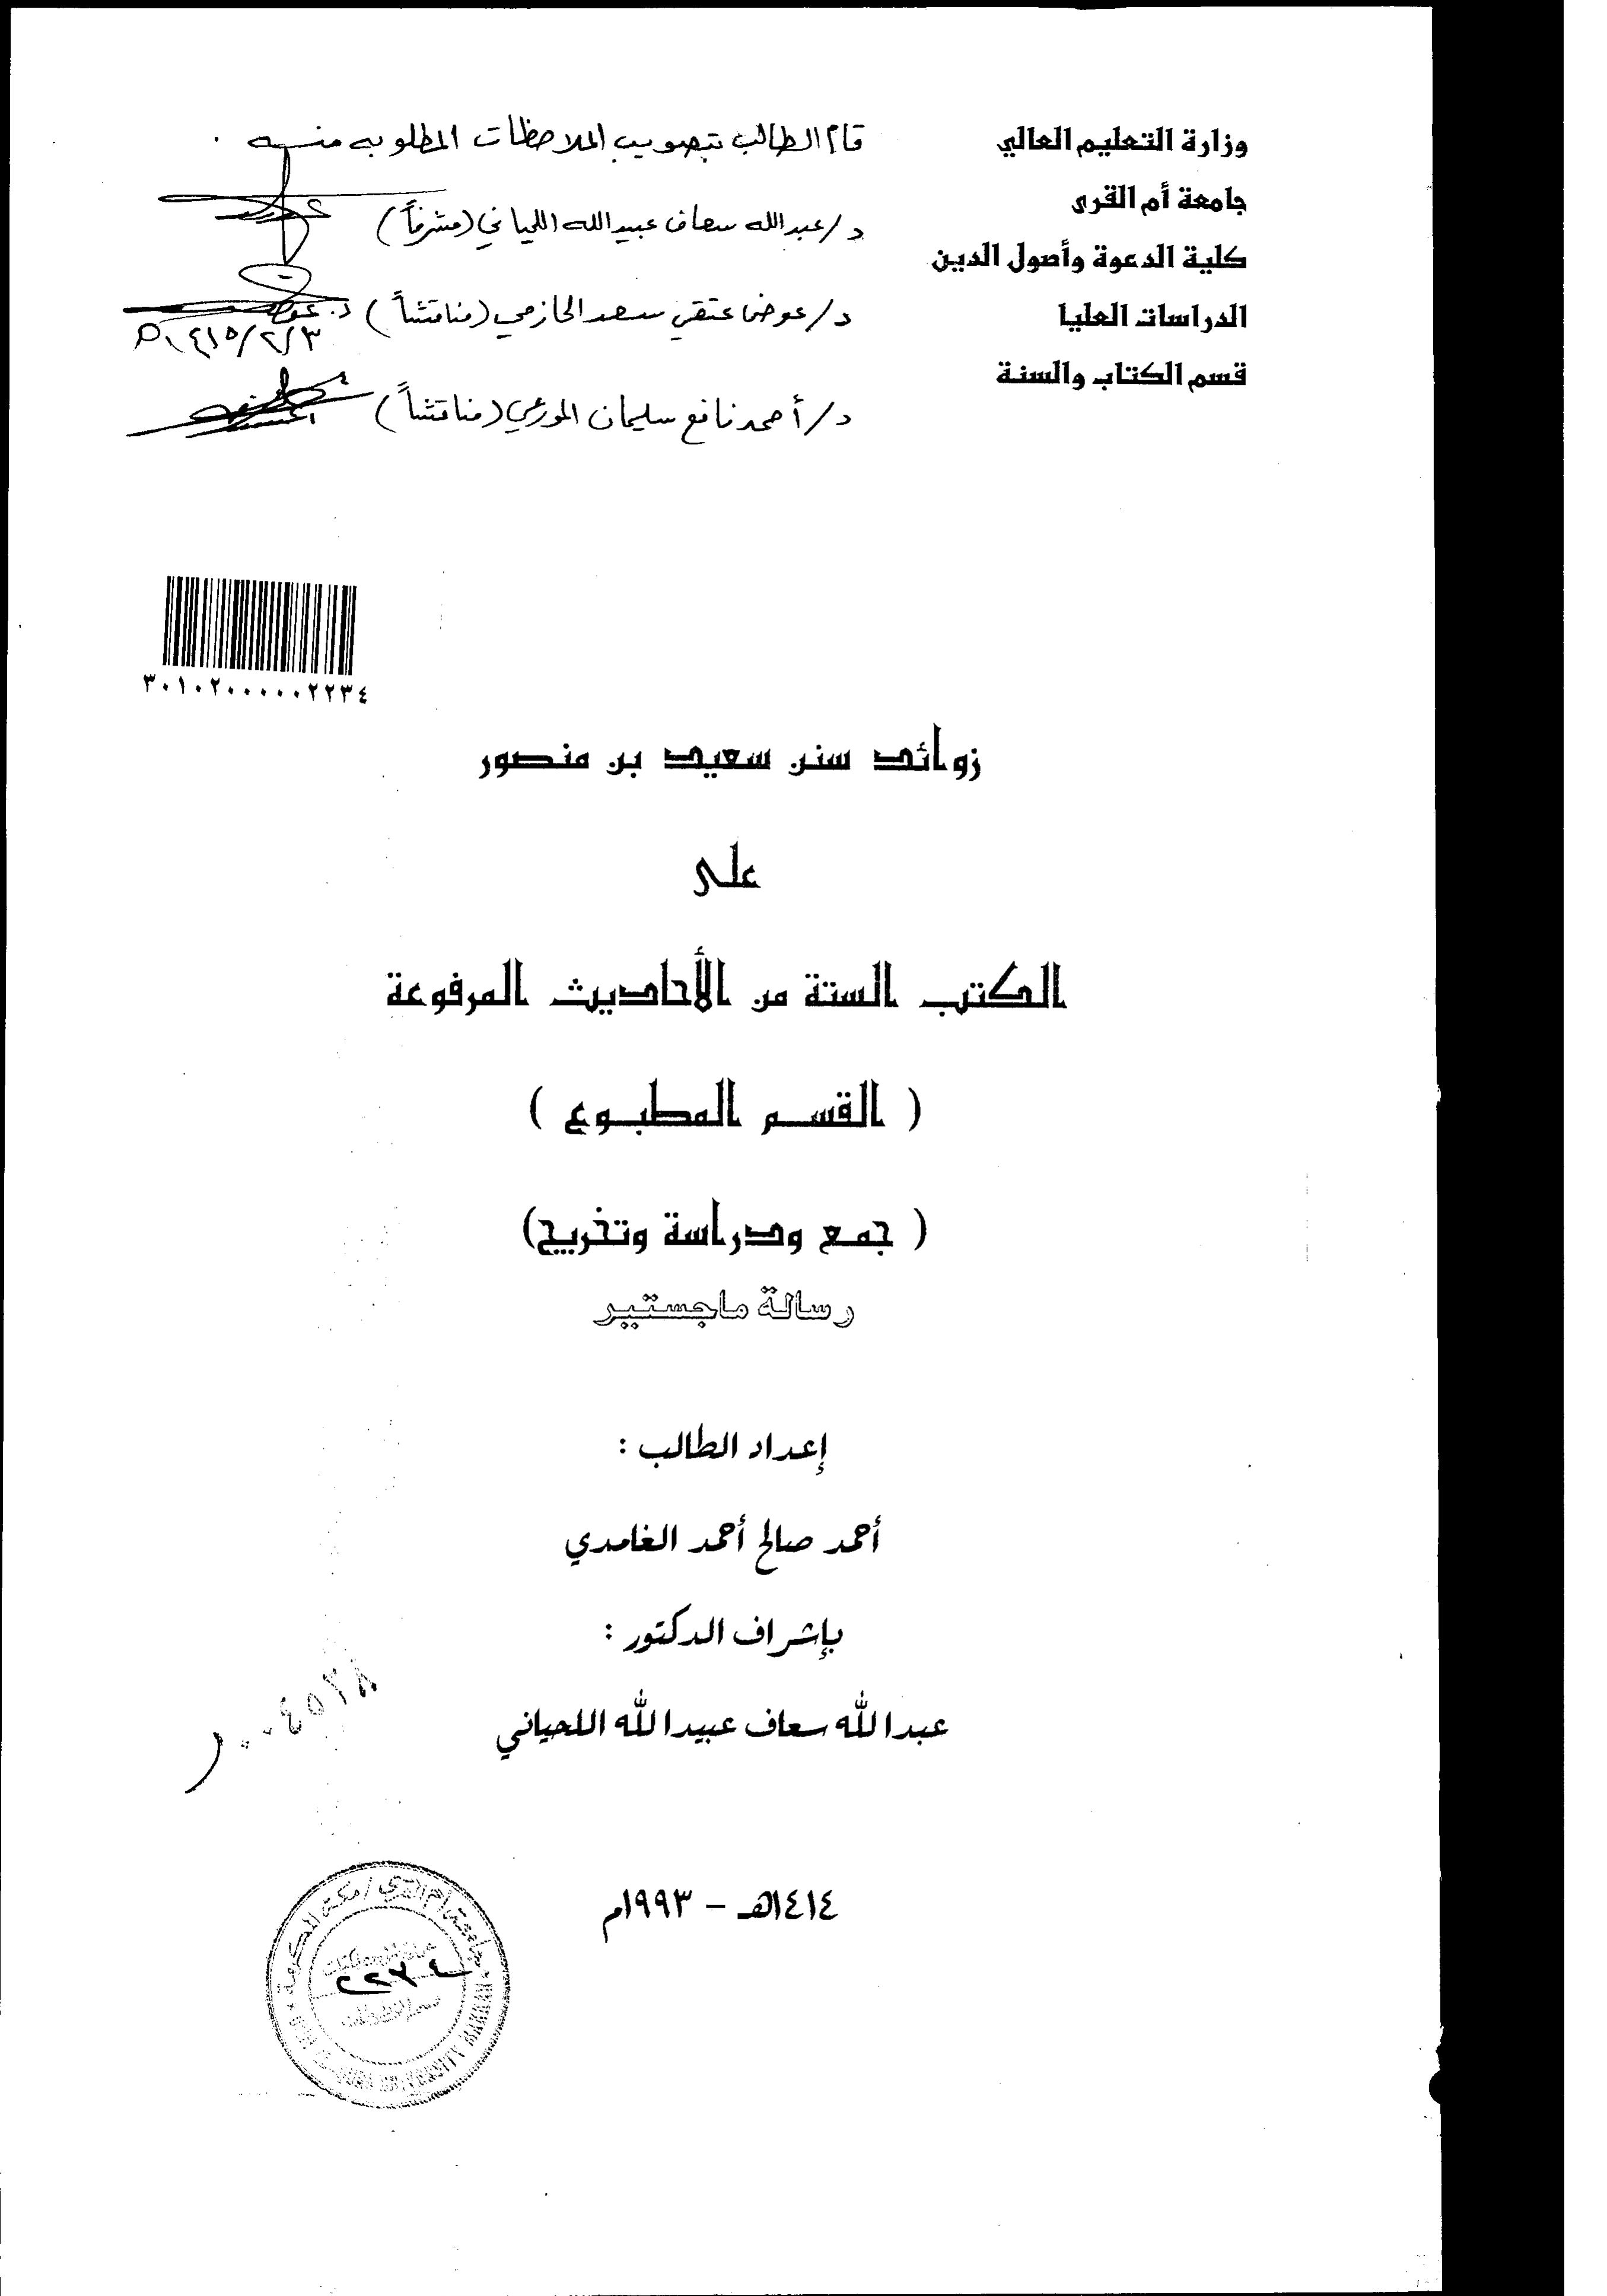 وزارة التعليم العالي
جامعة أم القرى
كلية الدعوة وأصول الدين
الدراسات العليا
قسم الكتاب والسنة
قام الطالب بتصويب الملاحظات المطلوبه منه .
د/عبدالله سعاف عبيدالله اللحياني (مشرفاً)
د/عوض عتقي سعد الحازمي (مناقشاً)
١٤١٥/٢/٣هـ
د/أحمد نافع سليمان المورعي (مناقشاً)
٣٠١٠٢٠٠٠٠٠٢٢٣٤
زوائد سنن سعيد بن منصور
على
الكتب الستة من الأحاديث المرفوعة
( القسم المطبوع )
( جمع ودراسة وتخريج)
رسالة ماجستير
إعداد الطالب :
أحمد صالح أحمد الغامدي
بإشراف الدكتور :
عبدالله سعاف عبيدالله اللحياني
١٤١٤هـ - ١٩٩٣م
جامعة أم القرى / مكة المكرمة
٢٢٣٤